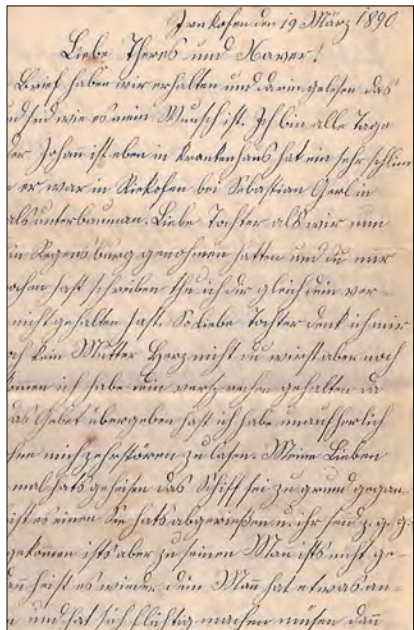 Irnkofen den 19 März 1890
Liebe Theres und Xaver!
Brief haben wir erhalten und darin gelesen das
wie es mein Wunsch ist. Ich bin alle Tage
der Johann ist eben in Krankenhaus hat ein sehr schlim
er war in Riekofen bei Sebastian Gerl in
als unterbauman. Liebe Tochter als wir nun
in Regensburg genohmen hatten und du mir
ochen hast schreiben thu ich dir gleich dein ver-
nicht gehalten hast. So liebe Tochter denk ich mir
ch kein Mutter Herz nicht du wirst aber noch
komen ich habe mein versprechen gehalten da
as Gebet übergeben hast ich habe unaufherlich
mich zehrstören zu lasen. Meine Lieben
mal hats geheisen das Schiff sei zu grund gegan
ist es einen Sie hats abgerießen u. ihr send z. g. g.
gekomen ists aber zu seinen Man ists nicht ge-
an heist es wieder dein Man hat etwas an-
und hat sich flüchtig machen müsen dan